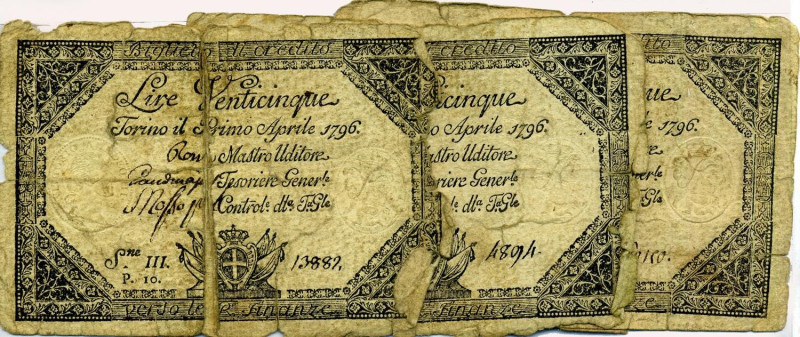 Biglietto di credito
Lire Venticinque
Torino il Primo Aprile 1796.
Mastro Uditore
Tesoriere Gener.le
Control.e d.la T.G.le
S.ne III.
P. 10.
13882.
verso le R. finanze
credito
cinque
o Aprile 1796.
astro Uditore
riere Gener.le
l.e d.la T.G.le
4894.
finanze
dito
ue
1796.
re
er.le
G.le
ze